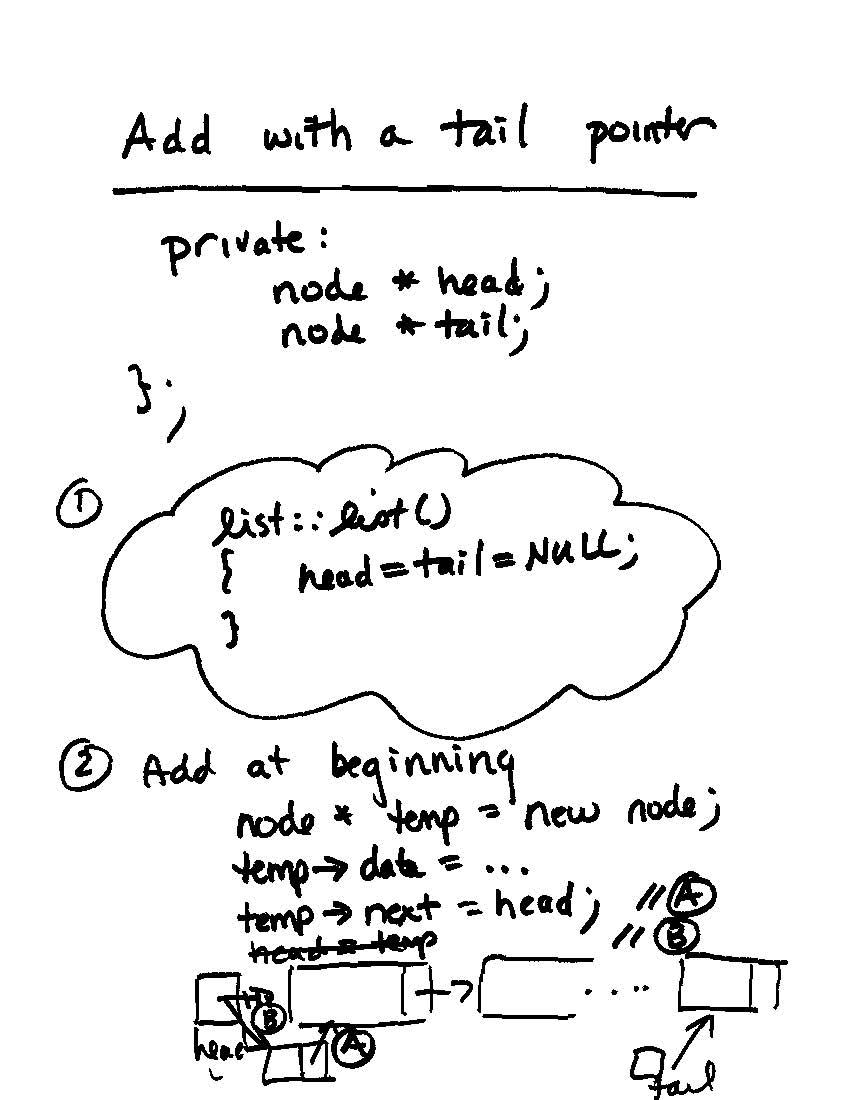 Add with a tail pointer
private:
node * head;
node * tail;
};
① list::list()
{ head = tail = NULL;
}
② Add at beginning
node * temp = new node;
temp → data = ...
temp → next = head; // Ⓐ
head = temp // Ⓑ
Ⓑ
head Ⓐ
tail